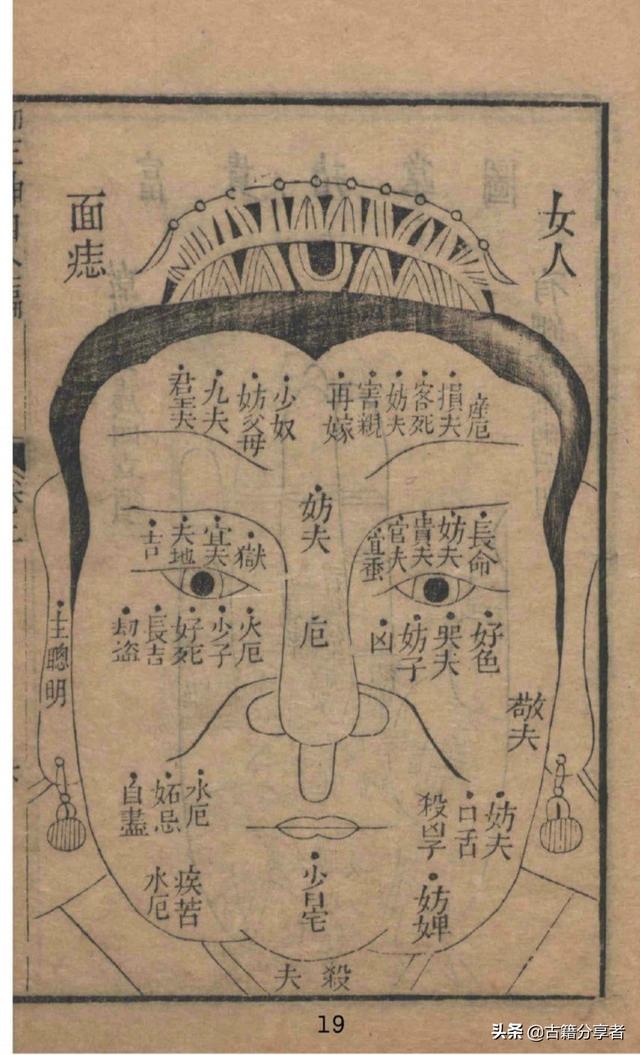 女人
面痣
產厄
損夫
客死
妨夫
害親
再嫁
少奴
妨父母
九夫
妨夫
長命
妨夫
貴夫
官夫
宜蚕
獄
宜夫
夫地
吉
厄
好色
哭夫
妨子
凶
火厄
少子
好死
長吉
劫盗
主聰明
敬夫
妨夫
口舌
殺凶子
水厄
妬忌
自盡
妨婢
疾苦
水厄
殺夫
19
头条 @古籍分享者